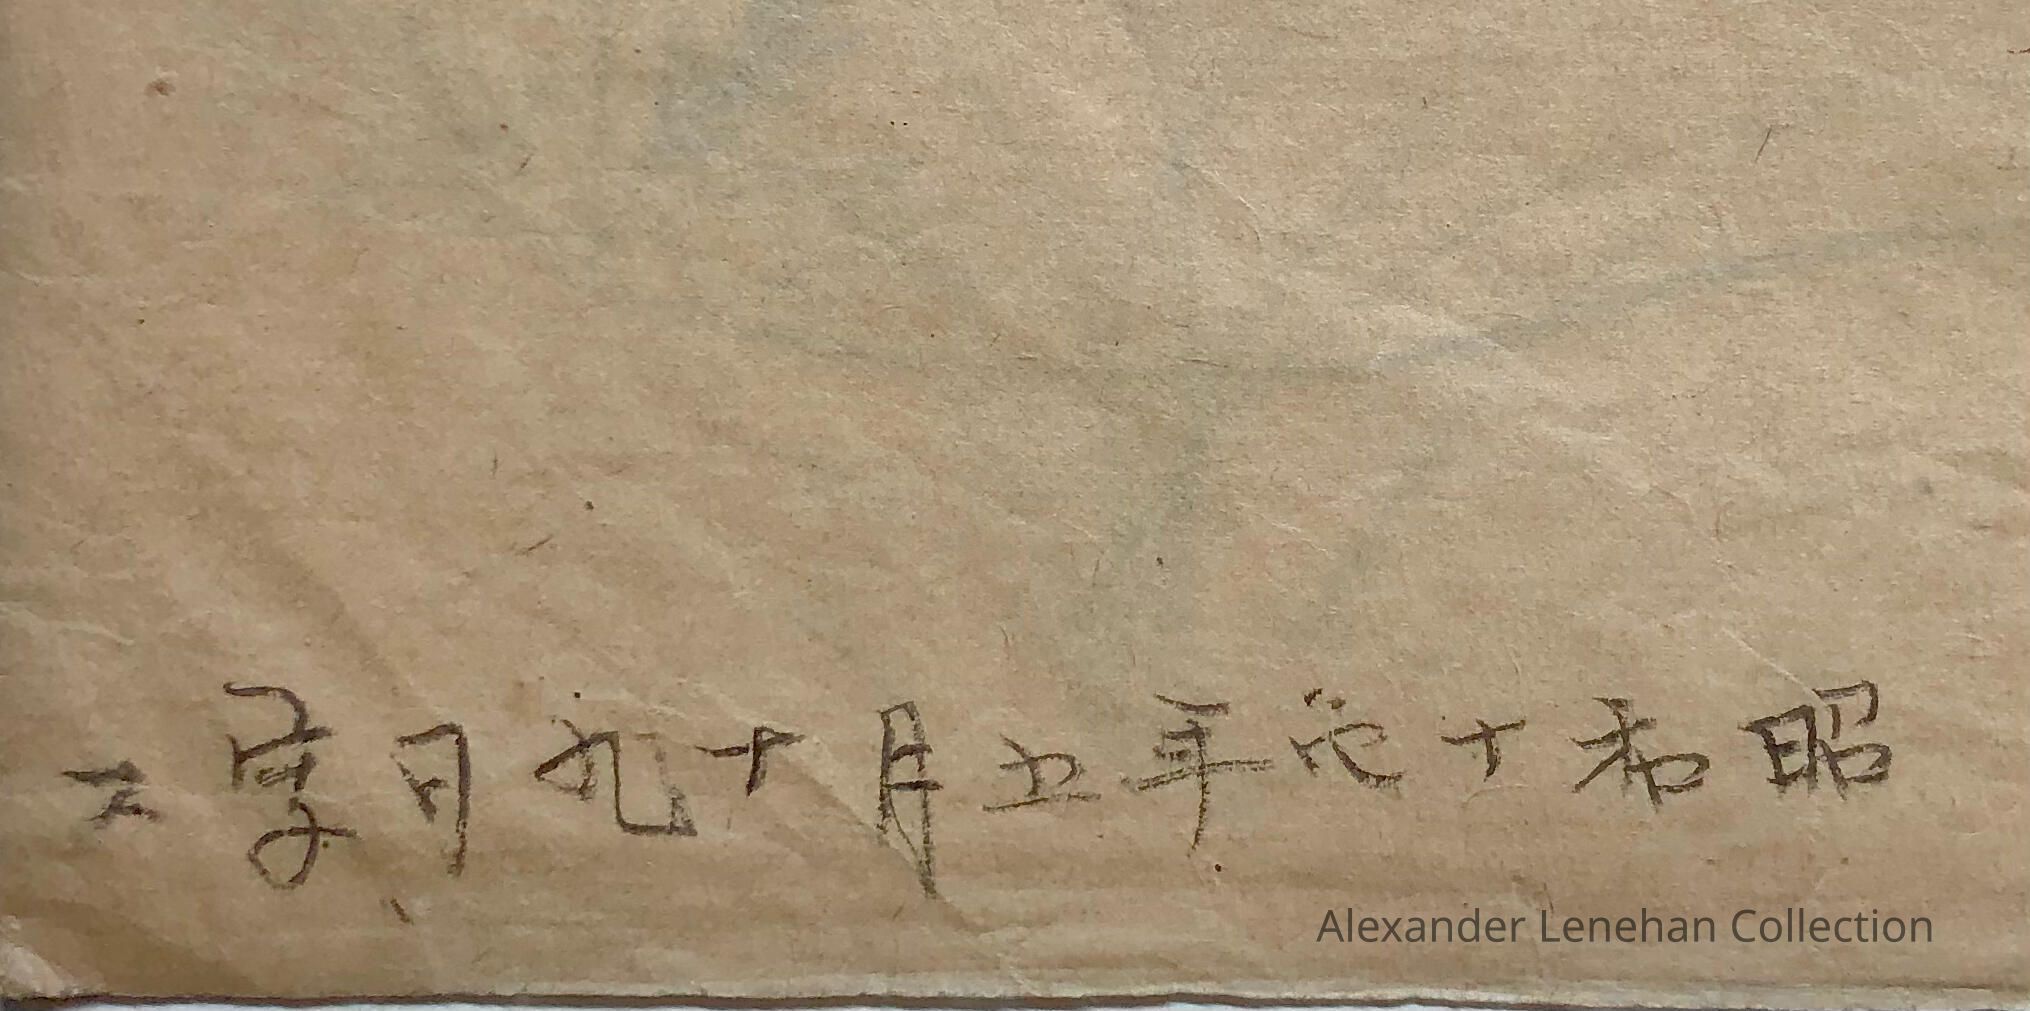 昭和十年五月十九日写ス
Alexander Lenehan Collection